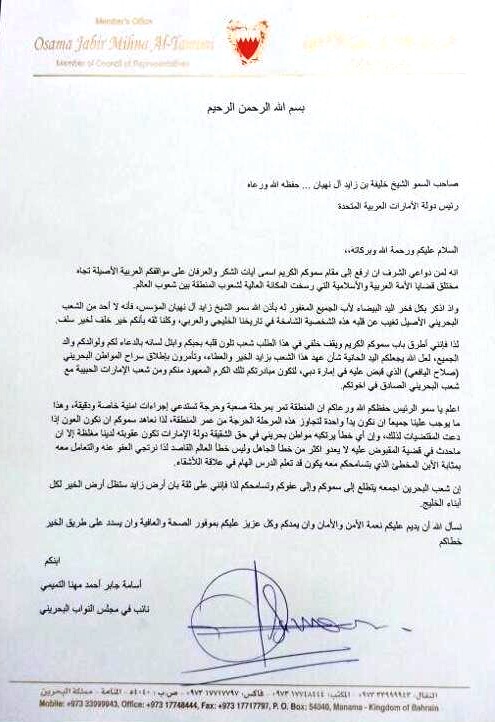 Member's Office
Osama Jabir Mihna Al-Tamimi
Member of Council of Representatives
بسم الله الرحمن الرحيم
صاحب السمو الشيخ خليفة بن زايد آل نهيان ... حفظه الله ورعاه
رئيس دولة الأمارات العربية المتحدة
السلام عليكم ورحمة الله وبركاته،،
انه لمن دواعي الشرف ان ارفع إلى مقام سموكم الكريم اسمى آيات الشكر والعرفان على مواقفكم العربية الأصيلة تجاه
مختلق قضايا الأمة العربية والأسلامية التي رسخت المكانة العالية لشعوب المنطقة بين شعوب العالم.
واذ اذكر بكل فخر اليد البيضاء لأب الجميع المغفور له بأذن الله سمو الشيخ زايد آل نهيان المؤسس، فأنه لا أحد من الشعب
البحريني الأصيل تغيب عن قلبه هذه الشخصية الشامخة في تاريخنا الخليجي والعربي، وكلنا ثقه بأنكم خير خلف لخير سلف.
لذا فإنني أطرق باب سموكم الكريم ويقف خلفي في هذا الطلب شعب تلون قلبه بحبكم وابتل لسانه بالدعاء لكم ولوالدكم والد
الجميع، لعل الله يجعلكم اليد الحانية شأن عهد هذا الشعب بزايد الخير والعطاء، وتأمرون بإطلاق سراح المواطن البحريني
(صلاح اليافعي) الذي قبض عليه في إمارة دبي، لتكون مبادرتكم تلك الكرم المعهود منكم ومن شعب الإمارات الحبيبة مع
شعب البحريني الصادق في اخوتكم.
اعلم يا سمو الرئيس حفظكم الله ورعاكم ان المنطقة تمر بمرحلة صعبة وحرجة تستدعي إجراءات امنية خاصة ودقيقة، وهذا
ما يوجب علينا جميعاً ان نكون يدا واحدة لتجاوز هذه المرحلة الحرجة من عمر المنطقة، لذا نعاهد سموكم ان نكون العون إذا
دعت المقتضيات لذلك، وإن أي خطأ يرتكبه مواطن بحريني في حق الشقيقة دولة الإمارات تكون عقوبته لدينا مغلظة إلا ان
ماحدث في قضية المقبوض عليه لا يعدو اكثر من خطأ الجاهل وليس خطأ العالم القاصد لذا نرتجي العفو عنه والتعامل معه
بمثابة الأبن المخطئ الذي بتسامحكم معه يكون قد تعلم الدرس الهام في علاقة للأشقاء.
إن شعب البحرين اجمعه يتطلع إلى سموكم وإلى عفوكم وتسامحكم لذا فإنني على ثقة بان أرض زايد ستظل أرض الخير لكل
أبناء الخليج.
نسأل الله أن يديم عليكم نعمة الأمن والأمان وان يمدكم وكل عزيز عليكم بموفور الصحة والعافية وان يسدد على طريق الخير
خطاكم
ابنكم
أسامة جابر أحمد مهنا التميمي
نائب في مجلس النواب البحريني
النقال: ٣٣٩٩٩٩٤٣ ٩٧٣+ - المكتب: ١٧٧٤٨٤٤٤ ٩٧٣+ - فاكس: ١٧٧١٧٧٩٧ ٩٧٣+ - ص.ب: ٥٤٠٤٠ - المنامة - مملكة البحرين
Mobile: +973 33999943, Office: +973 17748444, Fax: +973 17717797, P. O. Box: 54040, Manama - Kingdom of Bahrain